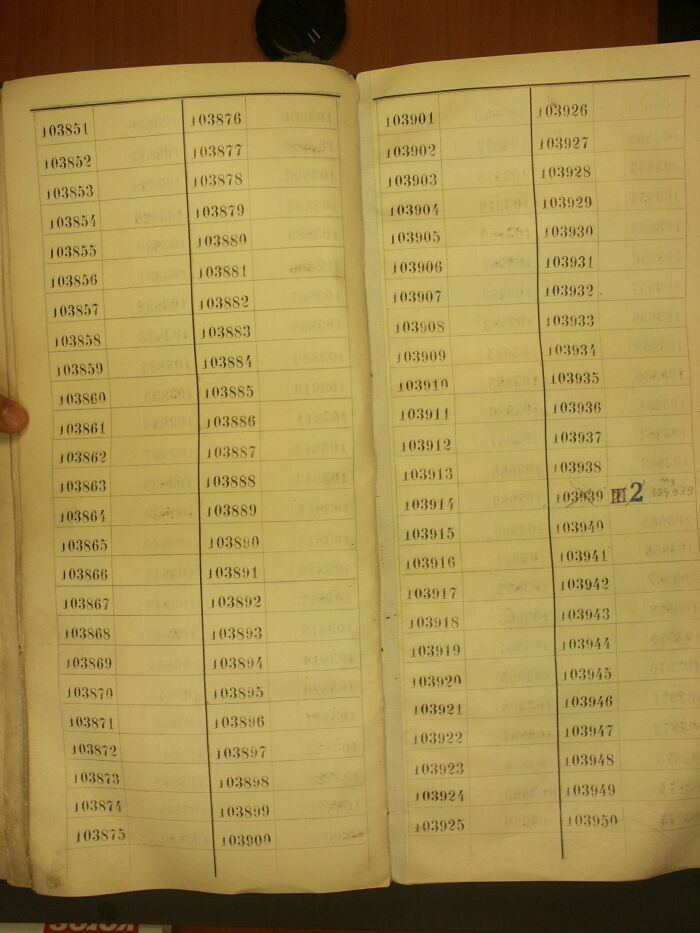 103851
103852
103853
103854
103855
103856
103857
103858
103859
103860
103861
103862
103863
103864
103865
103866
103867
103868
103869
103870
103871
103872
103873
103874
103875
103876
103877
103878
103879
103880
103881
103882
103883
103884
103885
103886
103887
103888
103889
103890
103891
103892
103893
103894
103895
103896
103897
103898
103899
103900
103901
103902
103903
103904
103905
103906
103907
103908
103909
103910
103911
103912
103913
103914
103915
103916
103917
103918
103919
103920
103921
103922
103923
103924
103925
103926
103927
103928
103929
103930
103931
103932
103933
103934
103935
103936
103937
103938
103939 2 104939
103940
103941
103942
103943
103944
103945
103946
103947
103948
103949
103950